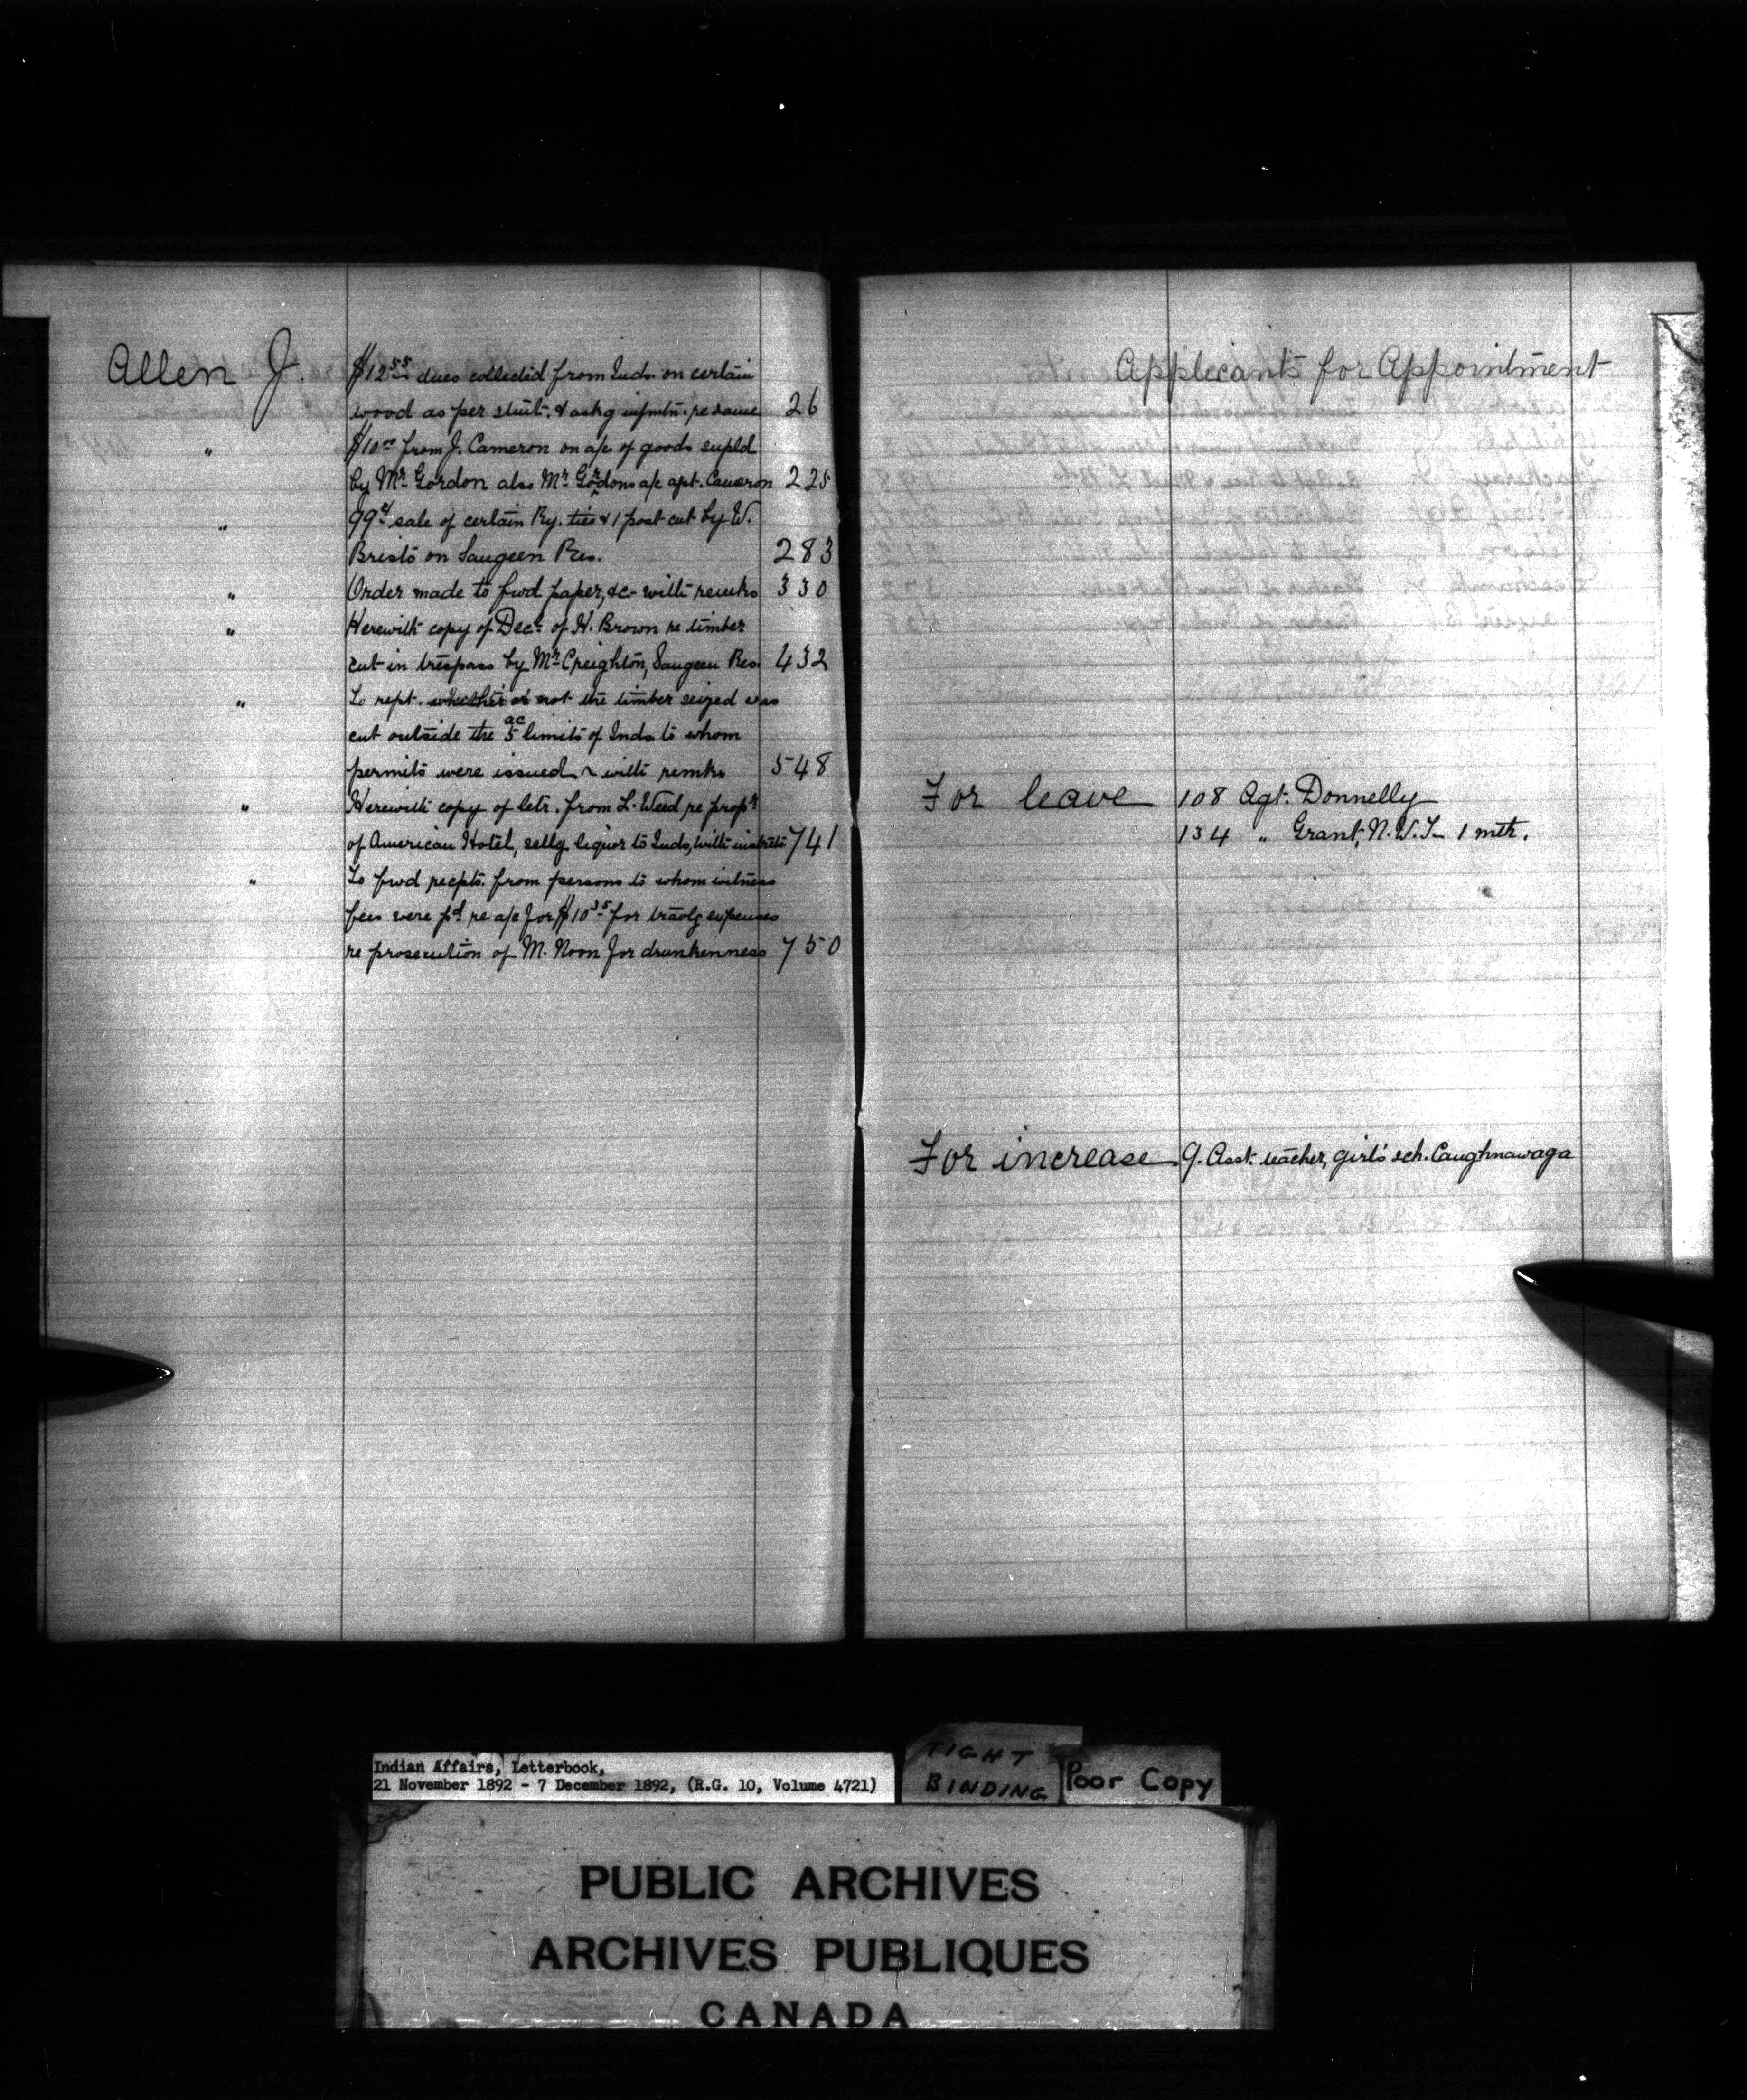 Allen J. $12 55 dues collected from Inds. on certain
wood as per stmt. & askg infmtn. re same 26
" $10 00 from J. Cameron on a/c of goods supld
by Mr. Gordon also Mr. Gordons a/c agt. Cameron 225
" 99¢ sale of certain Ry. ties & 1 post cut by W.
Bristo on Saugeen Res. 283
" Order made to fwd paper, &c- with remks 330
" Herewith copy of Decn. of H. Brown re timber
cut in trespass by Mr. Creighton, Saugeen Res. 432
" To rept. whether or not the timber seized was
cut outside the 5 ac limits of Inds. to whom
permits were issued with remks 548
" Herewith copy of letr. from L. Weed re propr.
of American Hotel, sellg liquor to Inds, with instrtns 741
" To fwd recpts. from persons to whom witness
fees were pd. re a/c for $10 35 for travlg expenses
re prosecution of M. Noon for drunkenness 750
Applicants for Appointment
For leave 108 Agt. Donnelly
134 " Grant, N.W.T. 1 mth.
For increase 9. Asst. teacher, girls' sch. Caughnawaga
Indian Affairs, Letterbook,
21 November 1892 - 7 December 1892, (R.G. 10, Volume 4721)
TIGHT
BINDING
Poor Copy
PUBLIC ARCHIVES
ARCHIVES PUBLIQUES
CANADA